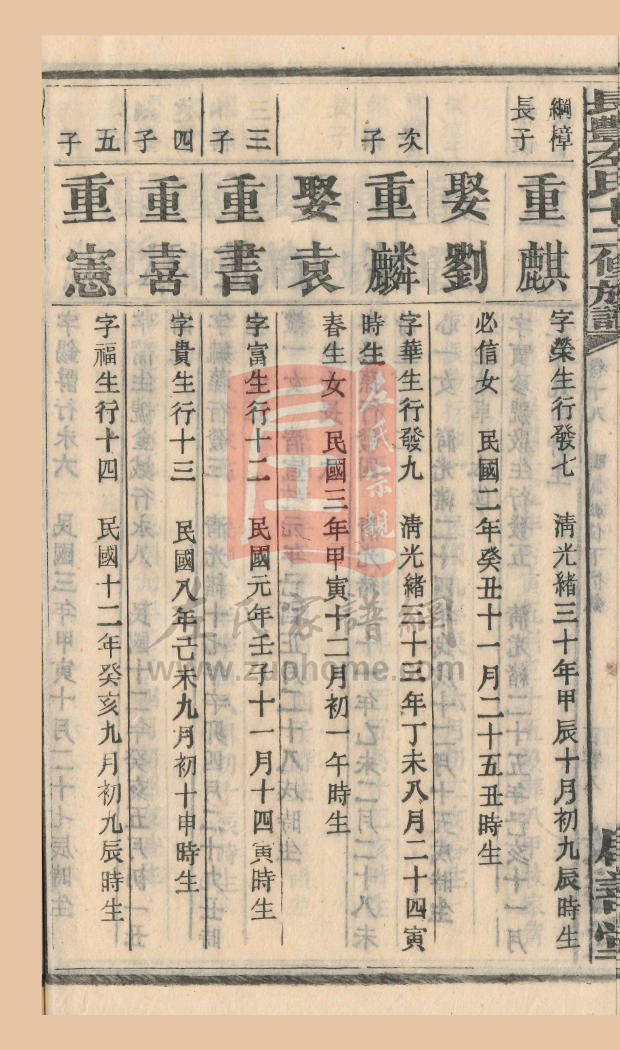 長豐左氏十二修族譜
綱樟長子
重麒
字榮生行發七 清光緒三十年甲辰十月初九辰時生
娶劉
必信女 民國二年癸丑十一月二十五丑時生
次子
重麟
字華生行發九 清光緒三十三年丁未八月二十四寅時生
娶袁
春生女 民國三年甲寅十二月初一午時生
三子
重書
字富生行十二 民國元年壬子十一月十四寅時生
四子
重喜
字貴生行十三 民國八年己未九月初十申時生
五子
重憲
字福生行十四 民國十二年癸亥九月初九辰時生
左氏宗親
左氏家譜網
www.zuohome.com